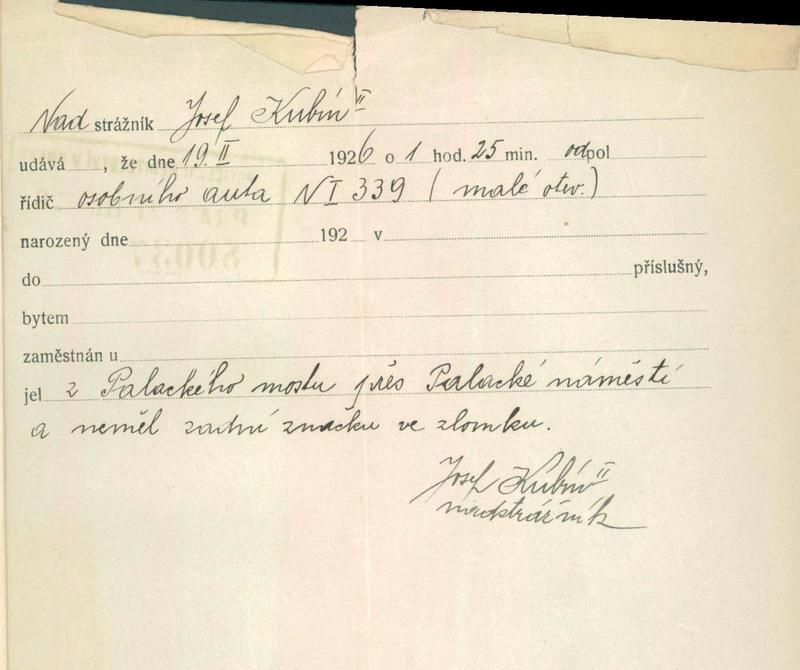 Nad strážník Josef Kubín II
udává, že dne 19. II 1926 o 1 hod. 25 min. odpol
řídič osobního auta N I 339 ( malé otev.)
narozený dne 192 v
do příslušný,
bytem
zaměstnán u
jel z Palackého mostu přes Palacké náměstí
a neměl zadní značku ve zlomku.
Josef Kubín II
nadstrážník